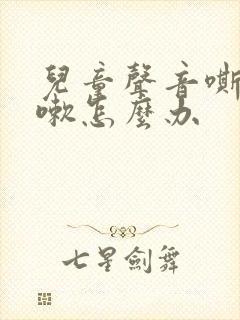 兒童聲音嘶
嗽怎麼办
七星劍舞